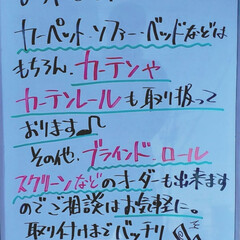 カーペット・ソファー・ベッドなどは
もちろん、カーテンや
カーテンレールも取り扱って
おります♪
その他、ブラインド・ロール
スクリーンなどのオーダーも出来ます
のでご相談はお気軽に。
取り付けまでバッチリ